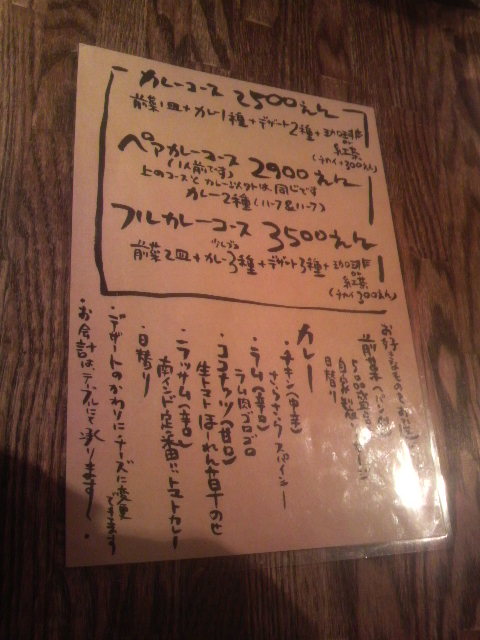 カレーコース 2500えん
前菜1皿+カレー1種+デザート2種+珈琲 or 紅茶
(チャイ+300えん)
ペアカレーコース 2900えん
(1人前です)
上のコースとカレー以外は同じです
カレー2種(ハーフ&ハーフ)
フルカレーコース 3500えん
少しずつ
前菜2皿+カレー3種+デザート3種+珈琲 or 紅茶
(チャイ+300えん)
お好きなものを
前菜
日替り
カレー
・チキン(中辛)
さらさらスパイシー
・ラム(辛口)
ラム肉ゴロゴロ
・ココナッツ(甘口)
生トマトほーれん草のせ
・ラッサム(辛口)
南インド定番トマトカレー
・日替り
・デザートのかわりにチーズに変更できます
・お会計は、テーブルにて承ります〜。